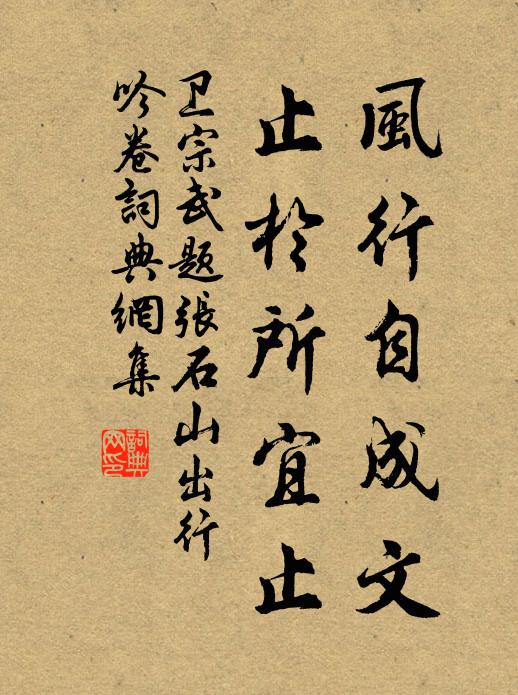 風行自成文
止於所宜止
卫宗武题張石山出行
吟卷詞典網集
詞典网印